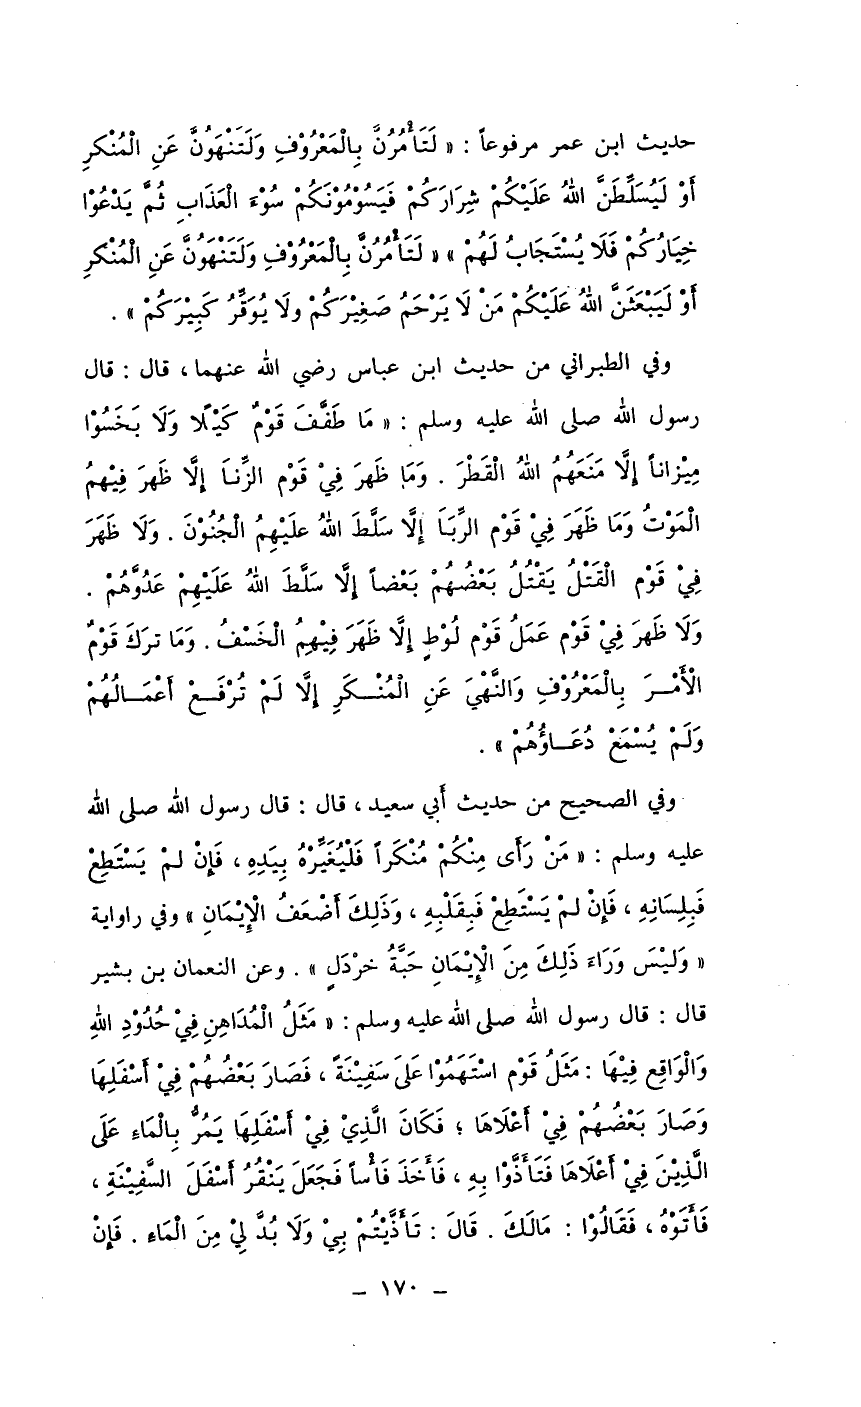 حديث ابن عمر مرفوعاً : « لَتَأْمُرُنَّ بِالْمَعْرُوْفِ وَلَتَنْهَوُنَّ عَنِ الْمُنْكَرِ
أَوْ لَيُسَلِّطَنَّ اللهُ عَلَيْكُمْ شِرَارَكُمْ فَيَسُوْمُوْنَكُمْ سُوْءَ الْعَذَابِ ثُمَّ يَدْعُوْا
خِيَارُكُمْ فَلَا يُسْتَجَابُ لَهُمْ » « لَتَأْمُرُنَّ بِالْمَعْرُوْفِ وَلَتَنْهَوُنَّ عَنِ الْمُنْكَرِ
أَوْ لَيَبْعَثَنَّ اللهُ عَلَيْكُمْ مَنْ لَا يَرْحَمُ صَغِيْرَكُمْ ولَا يُوَقِّرُ كَبِيْرَكُمْ » .
وفي الطبراني من حديث ابن عباس رضي الله عنهما ، قال : قال
رسول الله صلى الله عليه وسلم : « مَا طَفَّفَ قَوْمٌ كَيْلًا وَلَا بَخَسُوْا
مِيْزاناً إِلَّا مَنَعَهُمُ اللهُ الْقَطْرَ . وَمَا ظَهَرَ فِيْ قَوْمٍ الزِّنَا إِلَّا ظَهَرَ فِيْهِمُ
الْمَوْتُ وَمَا ظَهَرَ فِيْ قَوْمٍ الرِّبَا إِلَّا سَلَّطَ اللهُ عَلَيْهِمُ الْجُنُوْنَ . وَلَا ظَهَرَ
فِيْ قَوْمٍ الْقَتْلُ يَقْتُلُ بَعْضُهُمْ بَعْضاً إِلَّا سَلَّطَ اللهُ عَلَيْهِمْ عَدُوَّهُمْ .
وَلَا ظَهَرَ فِيْ قَوْمٍ عَمَلُ قَوْمِ لُوْطٍ إِلَّا ظَهَرَ فِيْهِمُ الْخَسْفُ . وَمَا تَرَكَ قَوْمٌ
الْأَمْـرَ بِالْمَعْرُوْفِ وَالنَّهْيَ عَنِ الْمُنْـكَرِ إِلَّا لَمْ تُرْفَـعْ أَعْمَـالُهُمْ
وَلَمْ يُسْمَعْ دُعَـاؤُهُمْ » .
وفي الصحيح من حديث أبي سعيد ، قال : قال رسول الله صلى الله
عليه وسلم : « مَنْ رَأَى مِنْكُمْ مُنْكَراً فَلْيُغَيِّرْهُ بِيَدِهِ ، فَإِنْ لَمْ يَسْتَطِعْ
فَبِلِسَانِهِ ، فَإِنْ لَمْ يَسْتَطِعْ فَبِقَلْبِهِ ، وَذَلِكَ أَضْعَفُ الْإِيْمَانِ » وفي راواية
« وَلَيْسَ وَرَاءَ ذَلِكَ مِنَ الْإِيْمَانِ حَبَّةُ خَرْدَلٍ » . وعن النعمان بن بشير
قال : قال رسول الله صلى الله عليه وسلم : « مَثَلُ الْمُدَاهِنِ فِيْ حُدُوْدِ اللهِ
وَالْوَاقِعِ فِيْهَا : مَثَلُ قَوْمٍ اسْتَهَمُوْا عَلَى سَفِيْنَةً ، فَصَارَ بَعْضُهُمْ فِيْ أَسْفَلِهَا
وَصَارَ بَعْضُهُمْ فِيْ أَعْلَاهَا ؛ فَكَانَ الَّذِيْ فِيْ أَسْفَلِهَا يَمُرُّ بِالْمَاءِ عَلَى
الَّذِيْنَ فِيْ أَعْلَاهَا فَتَأَذَّوْا بِهِ ، فَأَخَذَ فَأْساً فَجَعَلَ يَنْقُرُ أَسْفَلَ السَّفِيْنَةِ ،
فَأَتَوْهُ ، فَقَالُوْا : مَالَكَ . قَالَ : تَأَذَّيْتُمْ بِيْ وَلَا بُدَّ لِيْ مِنَ الْمَاءِ . فَإِنْ
– ١٧٠ –